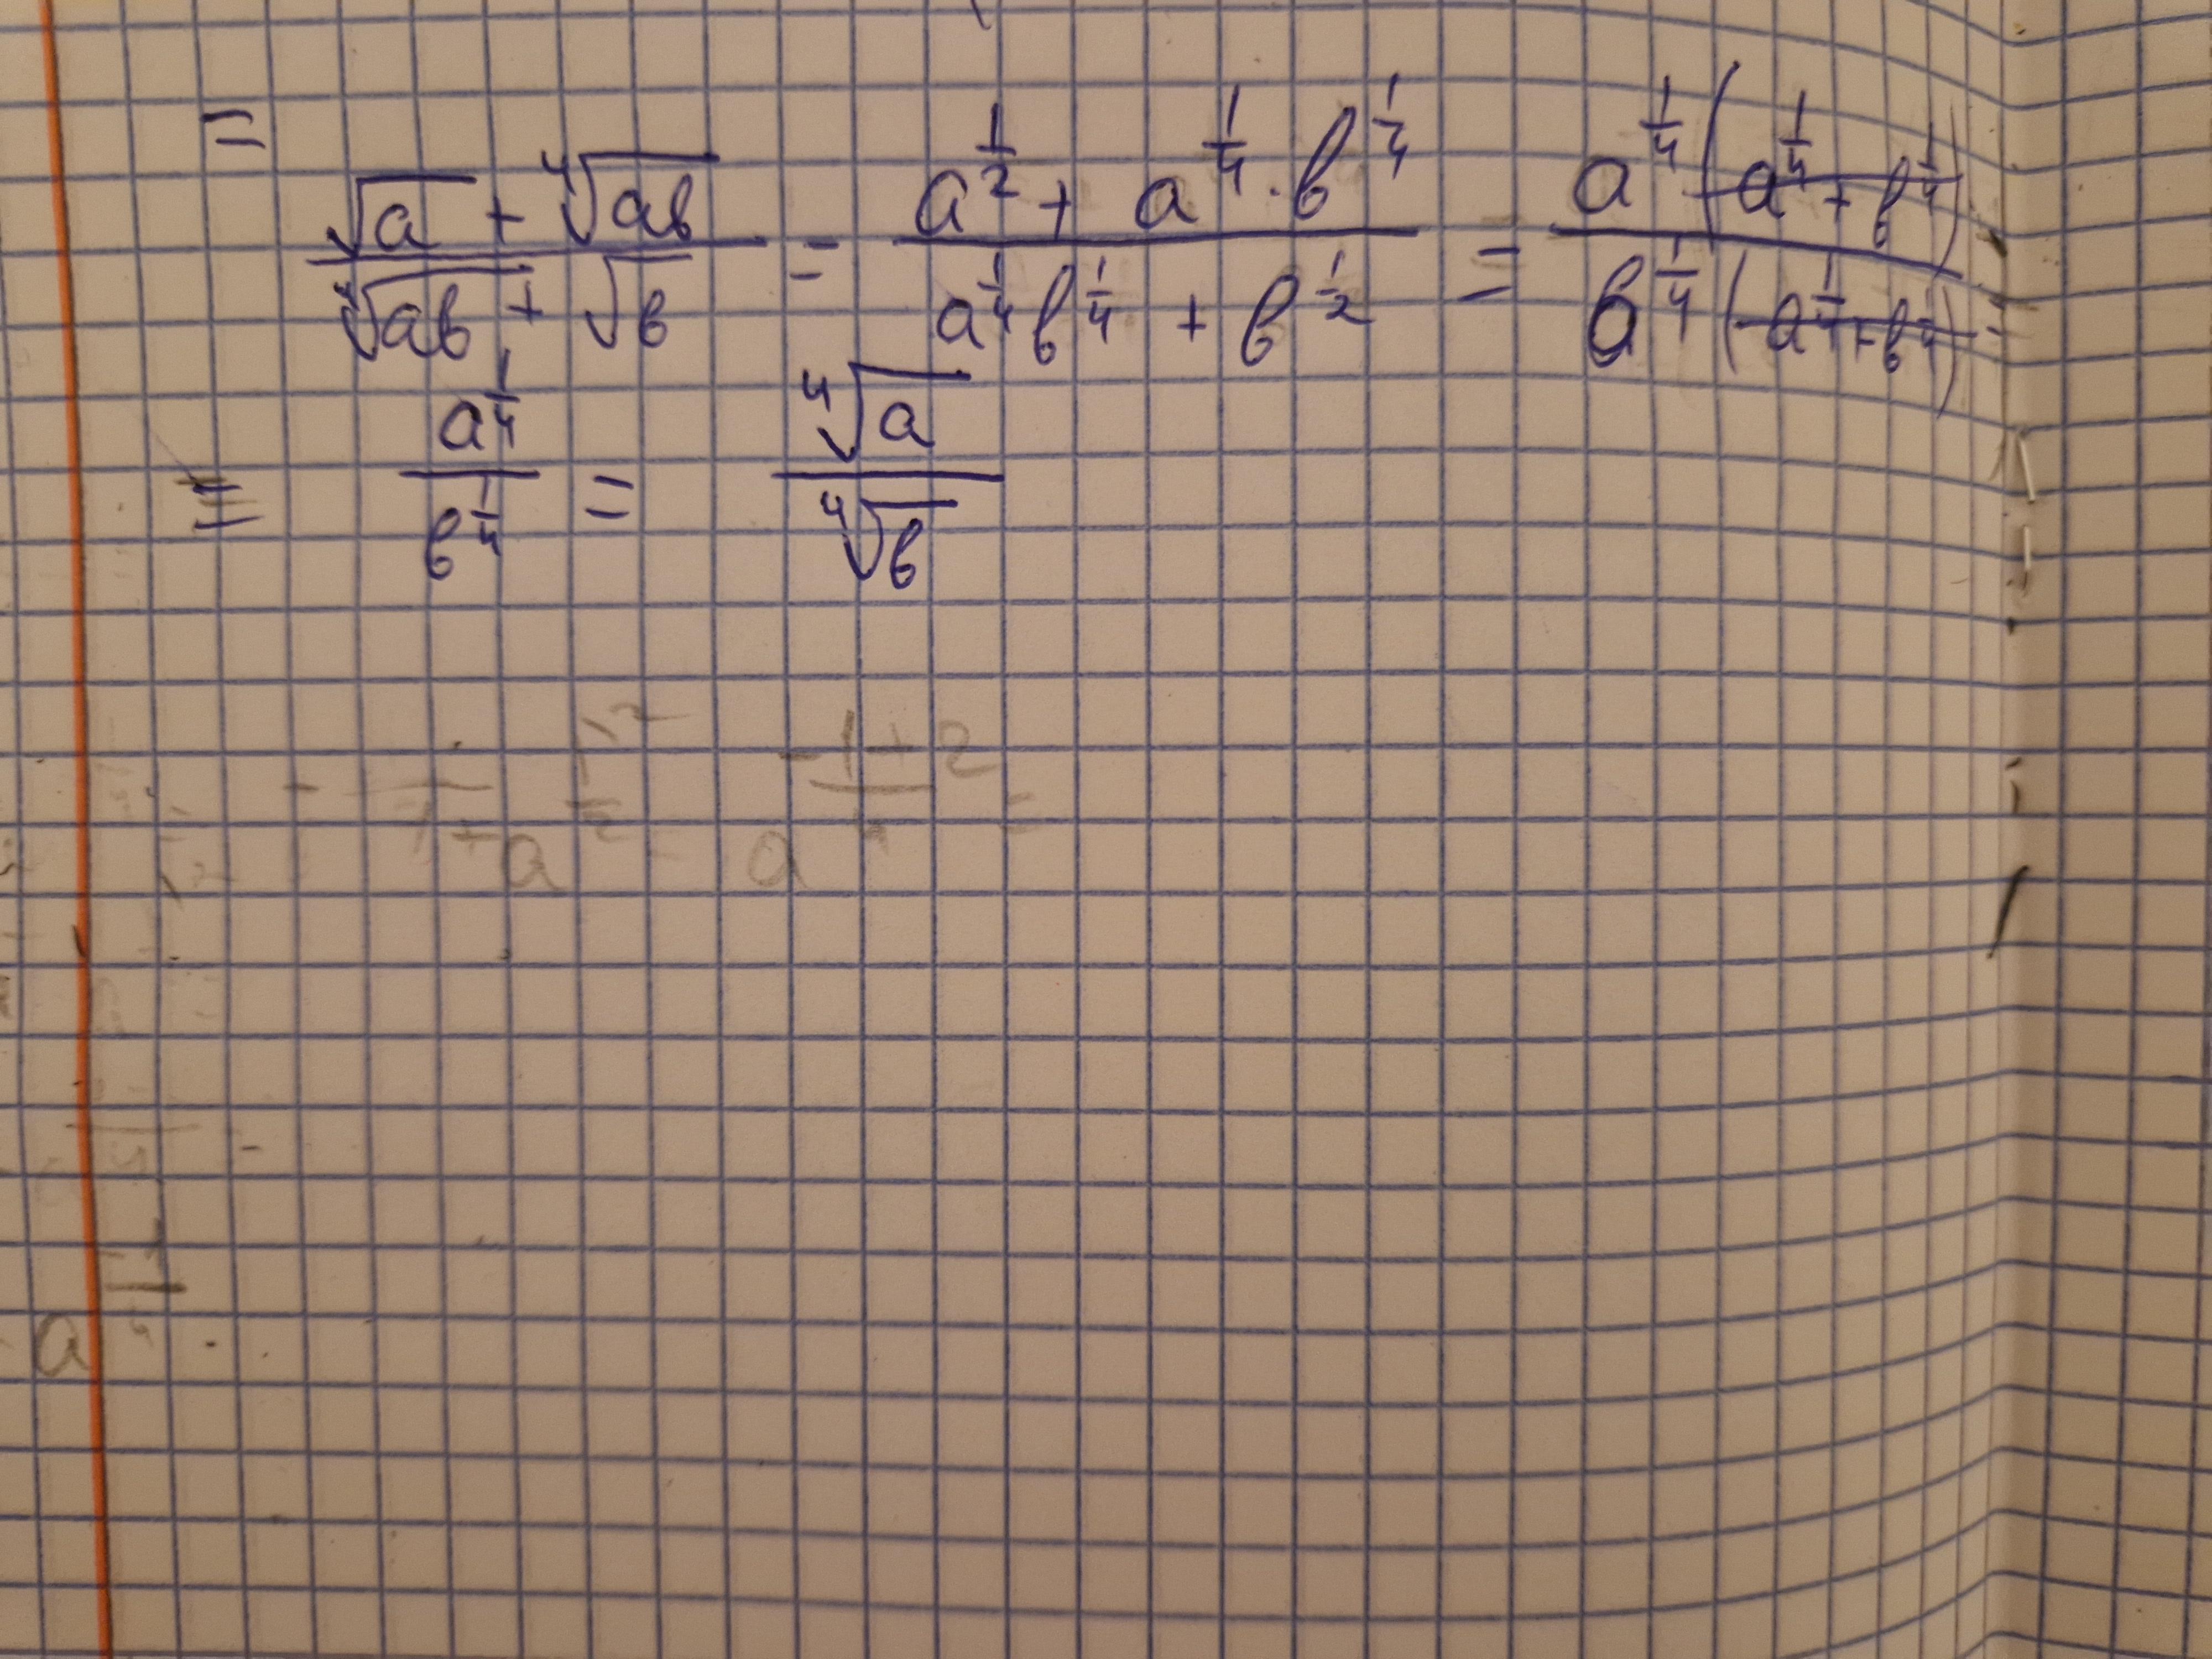 =
√a + ⁴√ab / ⁴√ab + √в = a^(1/2) + a^(1/4) · в^(1/4) / a^(1/4) в^(1/4) + в^(1/2) = a^(1/4) (a^(1/4) + в^(1/4)) / в^(1/4) (a^(1/4) + в^(1/4)) =
= a^(1/4) / в^(1/4) = ⁴√a / ⁴√в